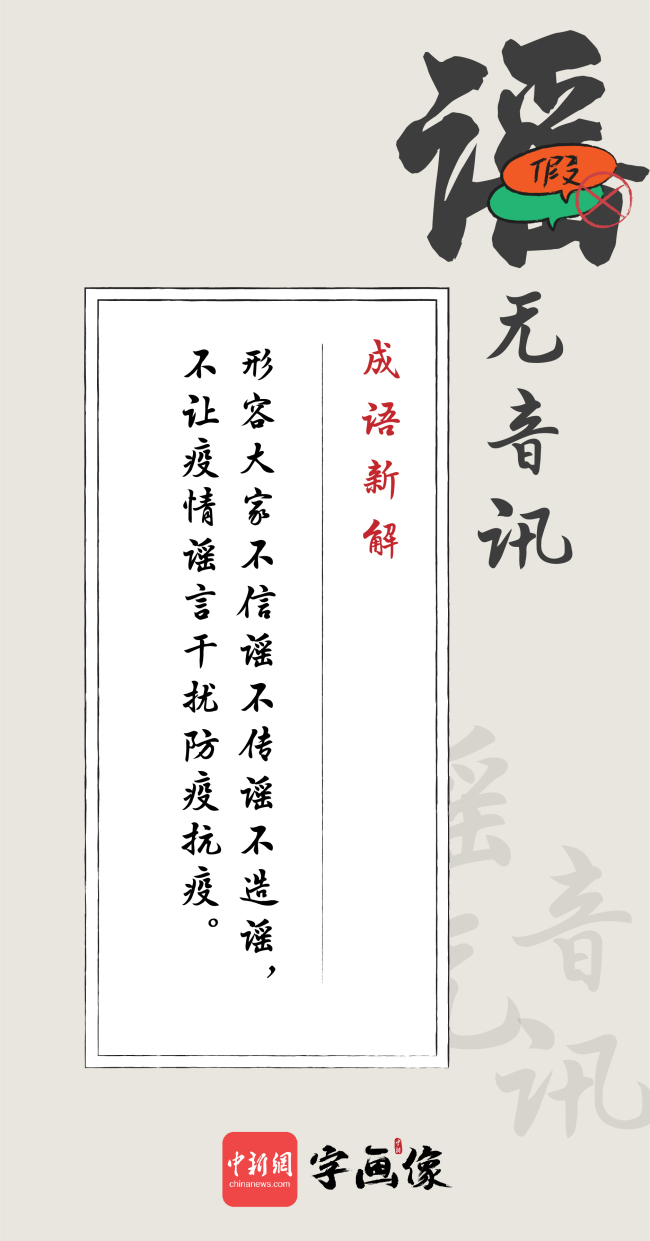 谣无音讯
假
成语新解
形容大家不信谣不传谣不造谣，
不让疫情谣言干扰防疫抗疫。
谣无
音讯
中新網
chinanews.com
字画像